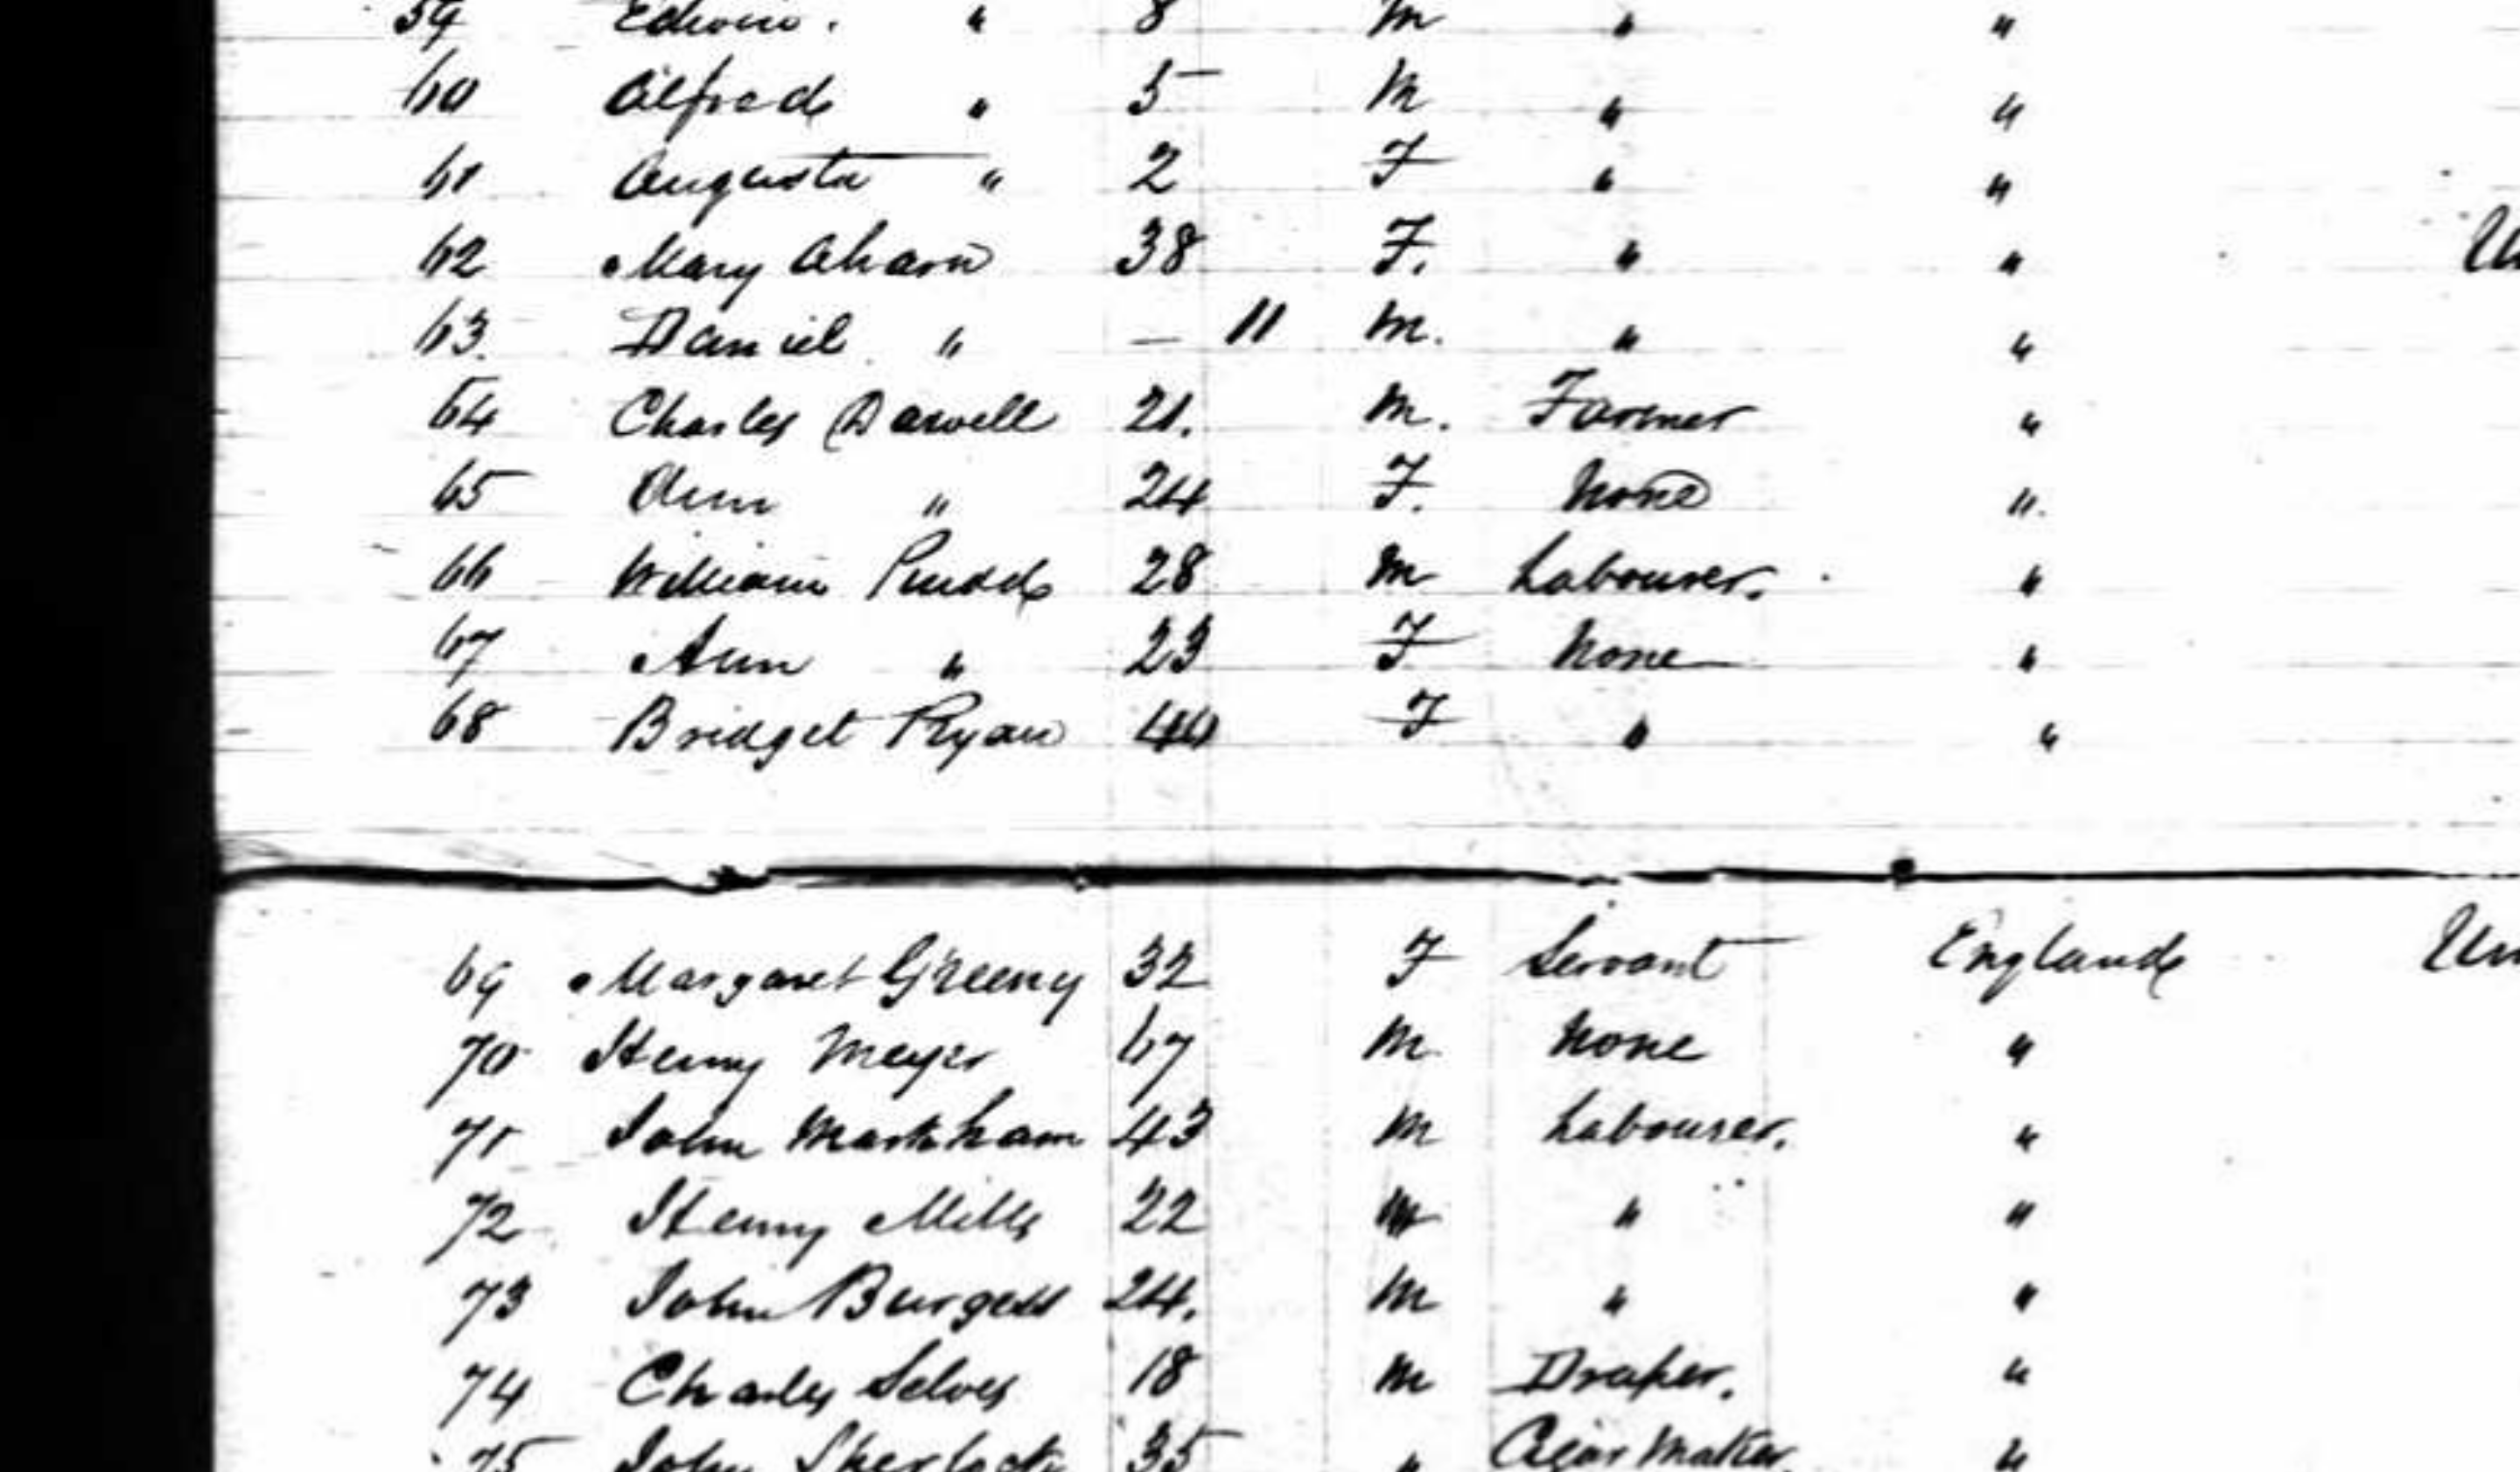 59 Edwin. " 8 M " "
60 Alfred " 5 M " "
61 Augusta " 2 F " "
62 Mary Ahearn 38 F. " "
63. Daniel " — 11 M. " "
64 Charles Darvell 21. M. Farmer "
65 Ann " 24 F. None "
66 William Pudd 28 M Labourer. "
67 Ann " 23 F None "
68 Bridget Ryan 44 F " "
69 Margaret Greeny 32 F Servant England
70 Henry Meyer 67 M None "
71 John Markham 43 M Labourer. "
72 Henry Mills 22 M " "
73 John Burgess 24. M " "
74 Charles Selves 18 M Draper. "
75 John Sherlock 35 " Cigar Maker. "